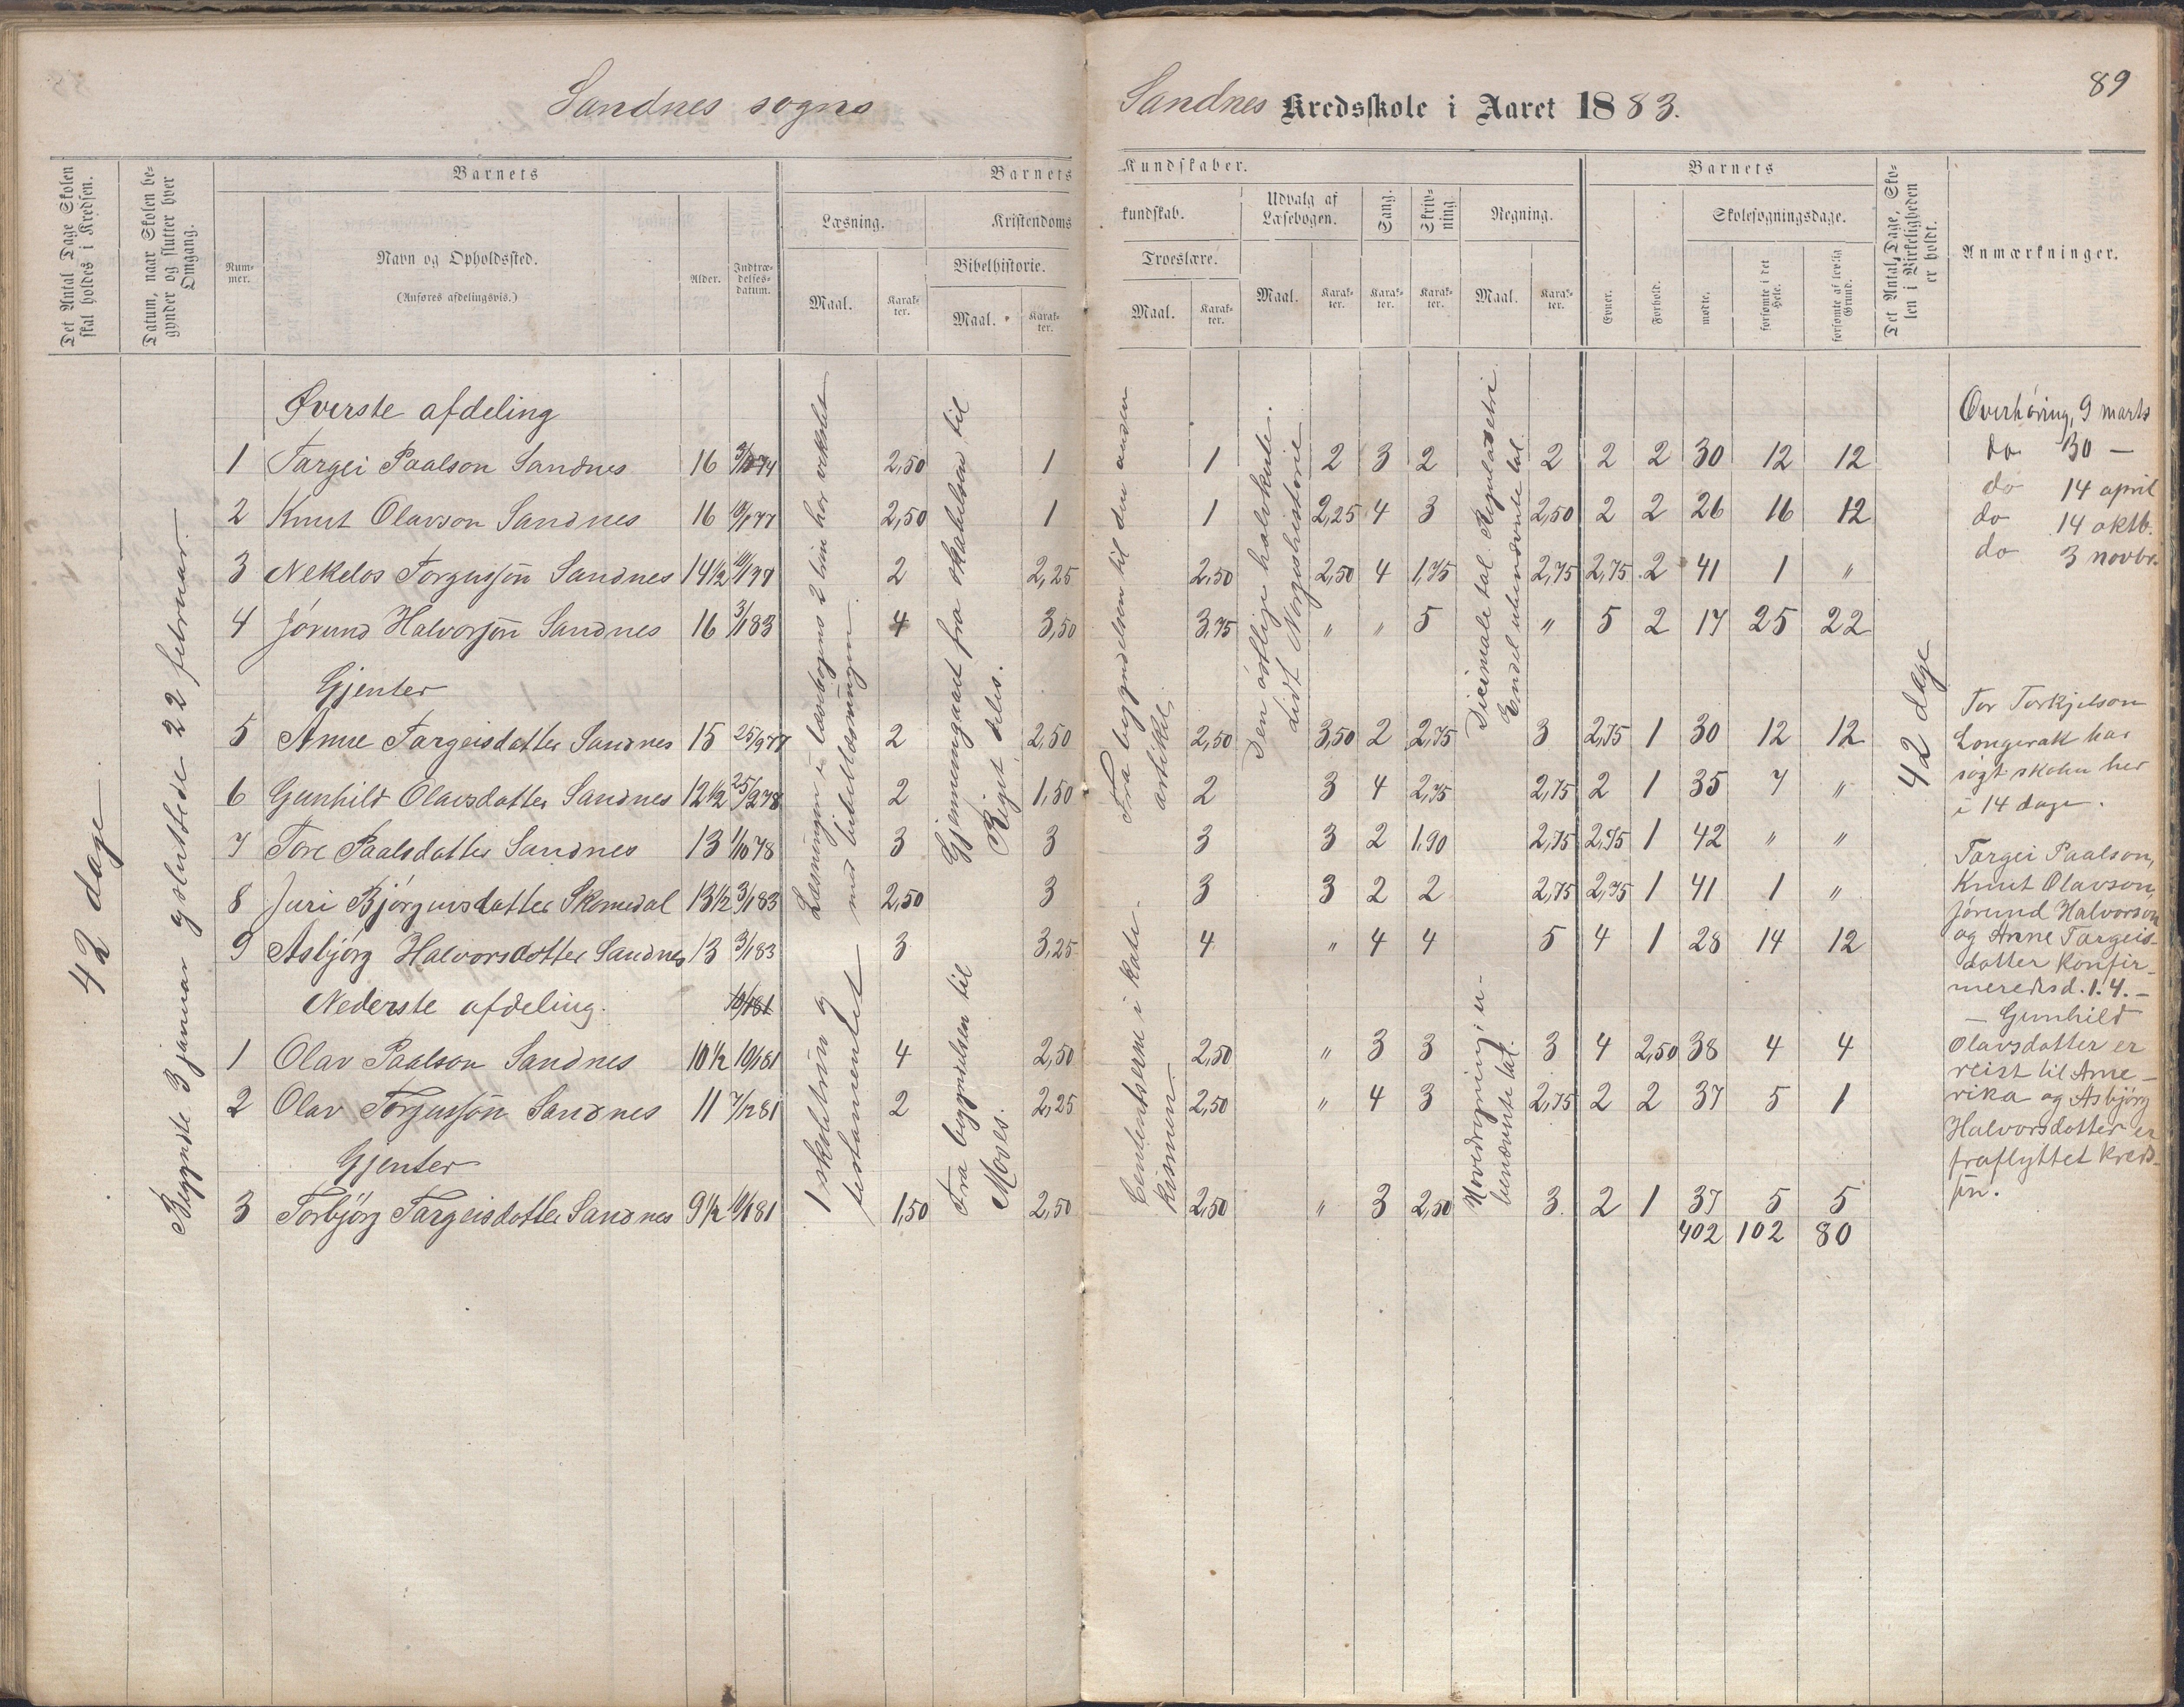 Sandnes sogns
Sandnes Kredsskole i Aaret 1883.
89
Det Antal Dage Skolen skal holdes i Kredsen.
Datum, naar Skolen begynder og slutter hver Omgang.
Barnets
Nummer.
Navn og Opholdssted.
(Anføres afdelingsvis.)
Alder.
Indtrædelsesdatum.
Barnets Kundskaber.
Læsning.
Maal.
Karakter.
Kristendomskundskab.
Bibelhistorie.
Maal.
Karakter.
Troeslære.
Maal.
Karakter.
Udvalg af Læsebogen.
Maal.
Karakter.
Sang.
Karakter.
Skrivning.
Karakter.
Regning.
Maal.
Karakter.
Barnets
Evner.
Forhold.
Skolesøgningsdage.
mødte.
forsømte i det Hele.
forsømte af lovlig Grund.
Det Antal Dage, Skolen i Virkeligheden er holdt.
Anmærkninger.
42 dage
Begyndte 3 januar og sluttede 22 februar.
Øverste afdeling
1 Targei Paalson Sandnes 16 2,50 1 1 2 3 2 2 2 2 30 12 12
2 Knut Olavson Sandnes 16 2,50 1 1 2,25 4 3 2,50 2 2 26 16 12
3 Nekelos Torgusson Sandnes 14½ 2 2,25 2,50 2,50 4 1,75 2,75 2,75 2 41 1 "
4 Jørund Halvorson Sandnes 16 3/1 83 4 3,50 3,75 " " 5 " 5 2 17 25 22
Gjenter
5 Anne Targeisdatter Sandnes 15 25/9 77 2 2,50 2,50 3,50 2 2,75 3 2,75 1 30 12 12
6 Gunhild Olavsdatter Sandnes 12½ 25/2 78 2 1,50 2 3 4 2,75 2,75 2 1 35 7 "
7 Tore Paalsdatter Sandnes 13 1/10 78 3 3 3 3 2 1,90 2,75 2,75 1 42 " "
8 Juri Bjørgunsdatter Skomedal 13½ 3/1 83 2,50 3 3 3 2 2 2,75 2,75 1 41 1 "
9 Asbjørg Halvorsdotter Sandnes 13 3/1 83 3 3,25 4 " 4 4 5 4 1 28 14 12
Nederste afdeling. 10/1 81
1 Olav Paalson Sandnes 10½ 10/1 81 4 2,50 2,50 " 3 3 3 4 2,50 38 4 4
2 Olav Torgusson Sandnes 11 7/12 81 2 2,25 2,50 " 4 3 2,75 2 2 37 5 1
Gjenter
3 Torbjörg Targeisdotter Sandnes 9½ 10/1 81 1,50 2,50 2,50 " 3 2,50 3. 2 1 37 5 5
402 102 80
Læsningen i læsebogens 2 trin har vekslet
med bibellæsningen.
1 skoletrin og
testamentet
Gjennemgaaet fra skabelsen til
Riget deles.
Fra begyndelsen til
Moses.
Fra begyndelsen til den anden
artikkel.
Cententserne i kate-
kismen
Den østlige halvkule.
Lidt Norgeshistorie
Decimale tal. Reguladetri
Endel ubenævnte tal.
Noveregning i u-
benævnte tal.
42 dage
Overhøring, 9 marts
do 30 —
do 14 april
do 14 oktb.
do 3 novbr.
Tor Torkjelson
Longerak har
søgt skolen her
i 14 dage.
Targei Paalson,
Knut Olavson,
Jørund Halvorson
og Anne Targeis-
datter konfir-
meredes d. 1. 4. —
— Gunhild
Olavsdatter er
reist til Ame-
rika og Asbjörg
Halvorsdotter er
fraflyttet kreds-
en.